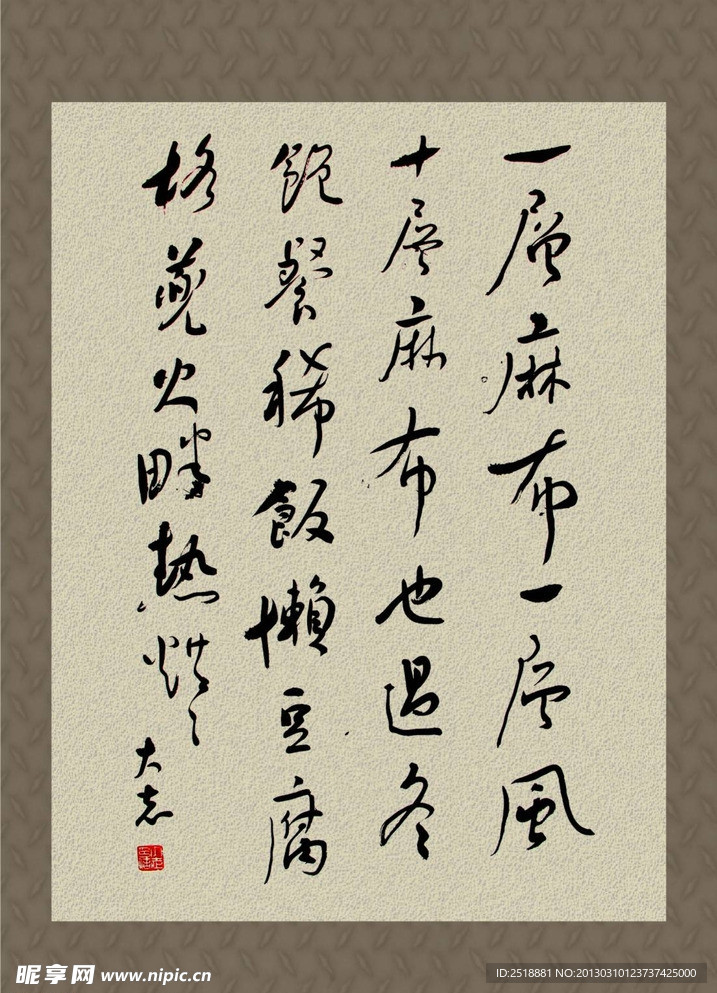 一層麻布一層風
十層麻布也過冬
飽餐稀飯懶豆腐
格蔸火畔熱烘〻
大志
昵享网 www.nipic.cn
ID:2518881 NO:20130310123737425000